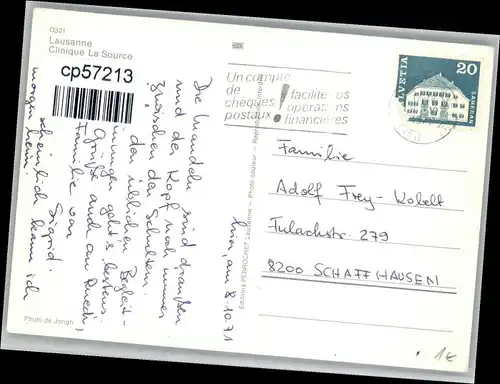 0321
Lausanne
Clinique La Source
cp57213
Un compte
de
chèques
postaux
!
facilite vos
opérations
financières
HELVETIA
20
SAMEDAN
hier, am 8.10.71
Die Mandeln sind draussen
und der Kopf noch immer
zwischen den Schultern.
den üblichen Begleit-
geht's bestens.
Grüsse auch an Ruedi,
Familie von
Sigrid.
scheinlich kann ich
morgen heim!
Familie
Adolf Frey-Kobelt
Tulachstr. 279
8200 SCHAFFHAUSEN
Editions PERROCHET Lausanne — Photo couleur — Reproduction interdite
Photo de Jongh
1€